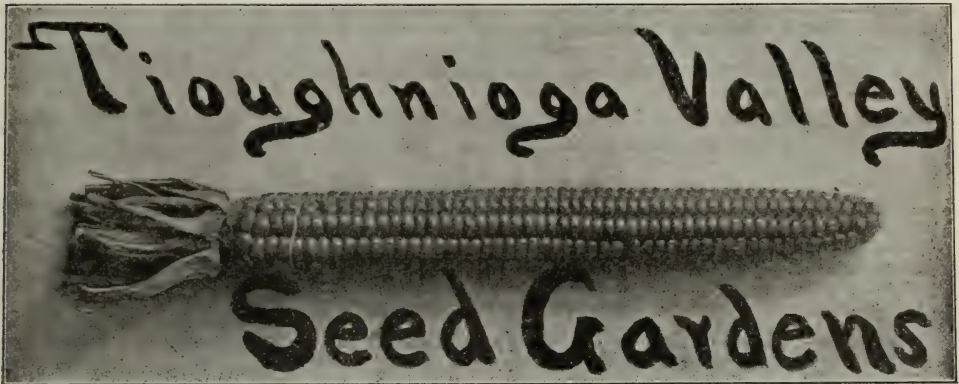 Tioughnioga Valley
Seed Gardens